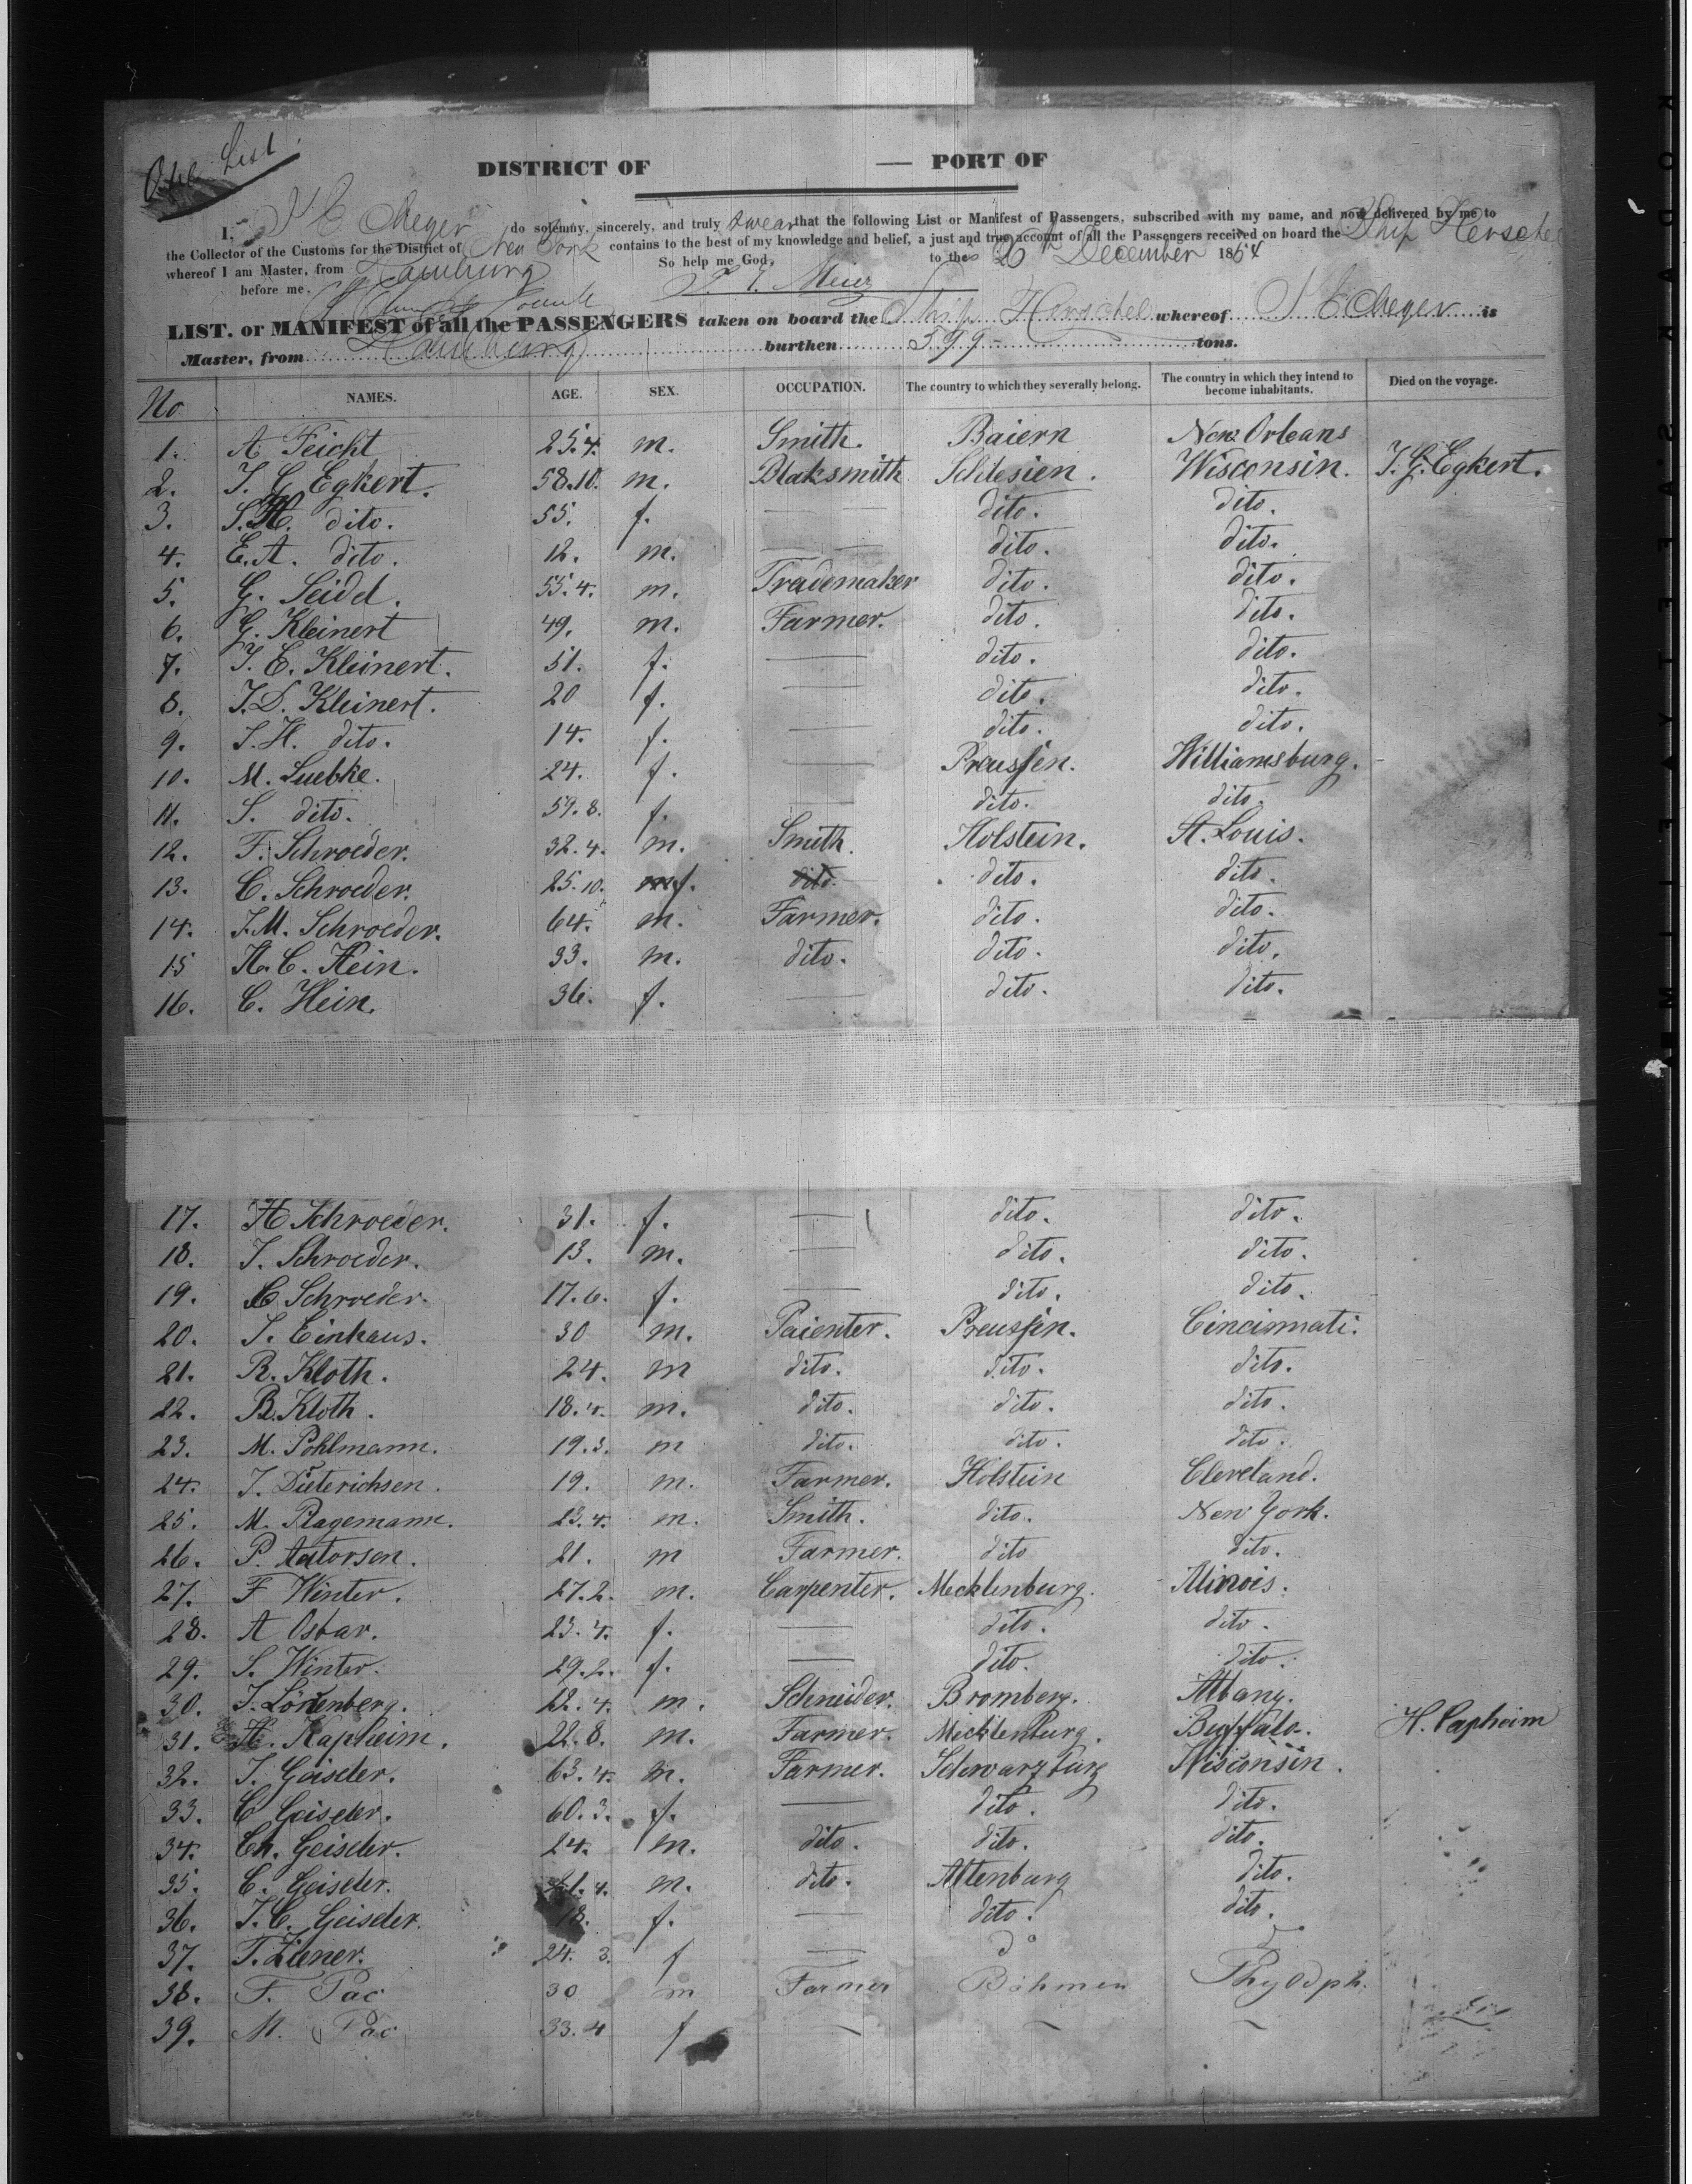 One List.
DISTRICT OF — PORT OF
I, P E Meyer do solemny, sincerely, and truly swear that the following List or Manifest of Passengers, subscribed with my name, and now delivered by me to
the Collector of the Customs for the District of New York contains to the best of my knowledge and belief, a just and true account of all the Passengers received on board the Ship Hersche
whereof I am Master, from Hamburg So help me God, to the 26th December 1854
before me,
LIST, or MANIFEST of all the PASSENGERS taken on board the Ship Herschel whereof P E Meyer is
Master, from Hamburg burthen 599 tons.
No NAMES. AGE. SEX. OCCUPATION. The country to which they severally belong. The country in which they intend to become inhabitants. Died on the voyage.
1. A Feicht 25.4. m. Smith. Baiern New Orleans
2. J. G Egkert. 58.10. m. Blaksmith Schlesien. Wisconsin. J. G. Egkert.
3. dito. 55. f. — dito. dito.
4. E. A. dito. 12. m. — dito. dito.
5. G. Seidel. 55.4. m. Trademaker dito. dito.
6. G. Kleinert 49. m. Farmer. dito. dito.
7. J. E. Kleinert. 51. f. — dito. dito.
8. J. D. Kleinert. 20 f. — dito. dito.
9. J. H. dito. 14. f. — dito. dito.
10. M. Luebke. 24. f. — Preussen. Williamsburg.
11. S. dito. 59.8. f. dito. dito.
12. F. Schroeder. 32.4. m. Smith. Holstein. St. Louis.
13. C. Schroeder. 25.10. f. dito. dito. dito.
14. J. M. Schroeder. 64. m. Farmer. dito. dito.
15 H. C. Hein. 33. m. dito. dito. dito.
16. C. Hein. 36. f. — dito. dito.
17. H Schroeder. 31. f. — dito. dito.
18. J. Schroeder. 13. m. — dito. dito.
19. C Schroeder. 17.6. f. — dito. dito.
20. J. Einhaus. 30 m. Paienter. Preussen. Cincinnati.
21. R. Kloth. 24. m dito. dito. dito.
22. B. Kloth. 18.4. m. dito. dito. dito.
23. M. Pohlmann. 19.3. m dito. dito. dito.
24. J. Dieterichsen. 19. m. Farmer. Holstein Cleveland.
25. M. Plagemann. 23.4. m. Smith. dito. New York.
26. P. 21. m Farmer. dito dito.
27. F Winter. 27.2. m. Carpenter. Mecklenburg. Illinois.
28. A Osbar. 23.4. f. — dito. dito.
29. S. Winter. 29.2. f. — dito. dito.
30. J. Löwenberg. 22.4. m. Schneider. Bromberg. Albany.
31. H. Kapheim. 22.8. m. Farmer. Mecklenburg. Buffalo. H. Papheim
32. J. Geiseler. 63.4. m. Farmer. Schwarzburg Wisconsin.
33. C Geiseler. 60.3. f. — dito. dito.
34. Ch. Geiseler. 24. m. dito. dito. dito.
35. C. Geiseler. 21.4. m. dito. Altenburg dito.
36. J. C. Geiseler. 18. f. — dito. dito.
37. T. Ziener. 24. 3. f — do
38. F. Pac 30 m Farmer Böhmen
39. M. Pac 33.4 f ~ ~ ~